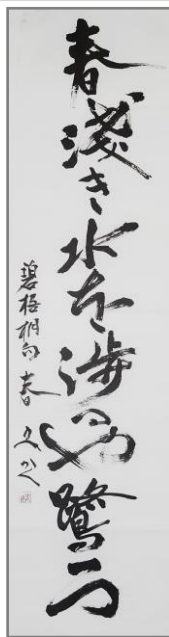 春浅き水を渉るや鷺一つ
碧梧桐句